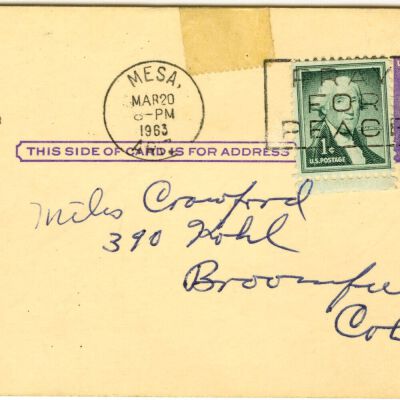 MESA,
MAR20
6-PM
1963
ARIZ.
PRAY
FOR
PEACE
1¢
U.S. POSTAGE
THIS SIDE OF CARD IS FOR ADDRESS
Miles Crawford
390 Kohl
Broomfie
Col